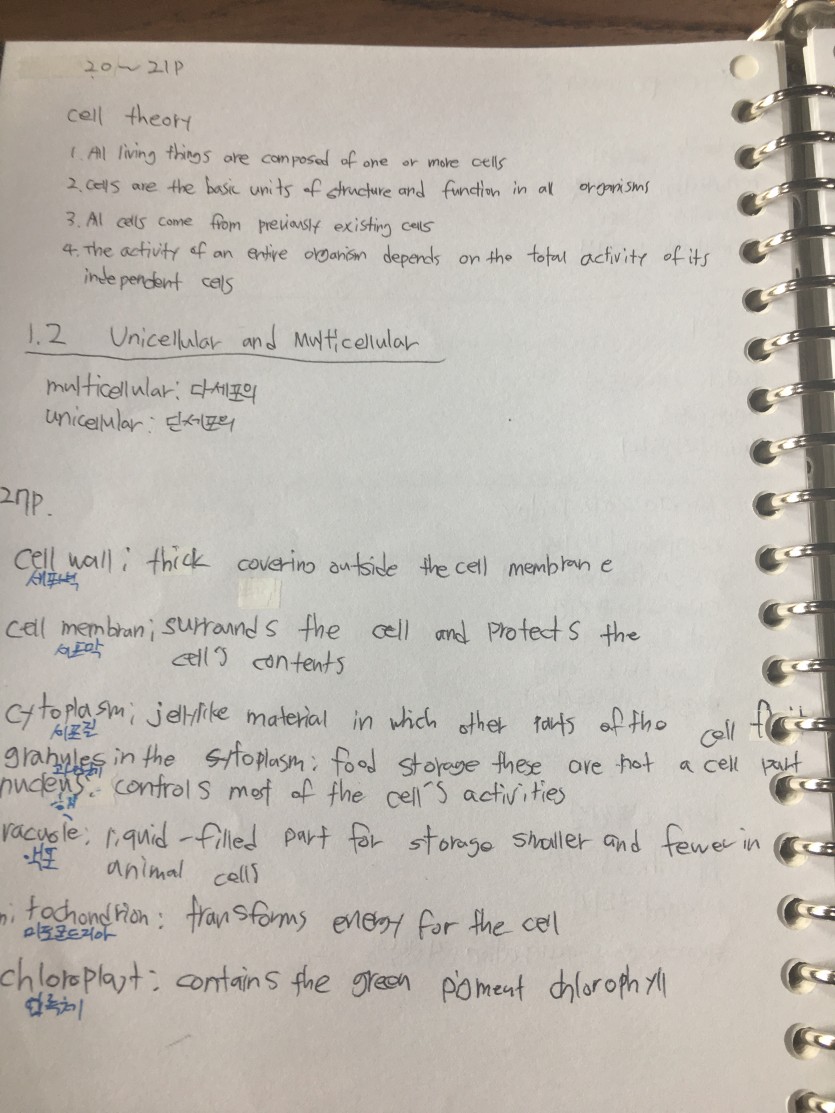 20~21P
cell theory
1. All living things are composed of one or more cells
2. cells are the basic units of structure and function in all organisms
3. All cells come from previously existing cells
4. The activity of an entire organism depends on the total activity of its
independent cells
1.2 Unicellular and Multicellular
multicellular: 다세포의
unicellular: 단세포의
27P.
cell wall; thick covering outside the cell membrane
세포벽
cell membran; surrounds the cell and protects the
세포막
cell's contents
cytoplasm; jellylike material in which other parts of the cell
세포질
granules in the sytoplasm: food storage these are not a cell part
nucleus: controls most of the cell's activities
vacuole: liquid-filled part for storage smaller and fewer in
액포
animal cells
mitochondrion: transforms energy for the cell
미토콘드리아
chloroplast: contains the green pigment chlorophyll
엽록체